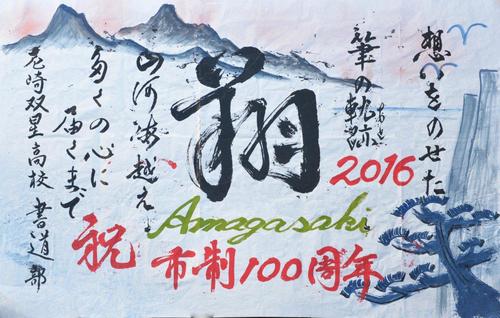 想いをのせた
筆の軌跡
あと
翔
山河海越え
多くの心に
届くまで
尼崎双星高校 書道部
2016
Amagasaki
祝
市制100周年